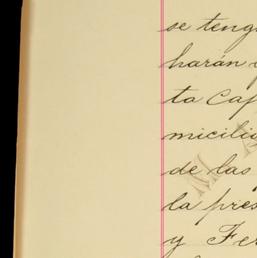 se teng
harán
ta Cap
micilio
de las
la pres
y Fer